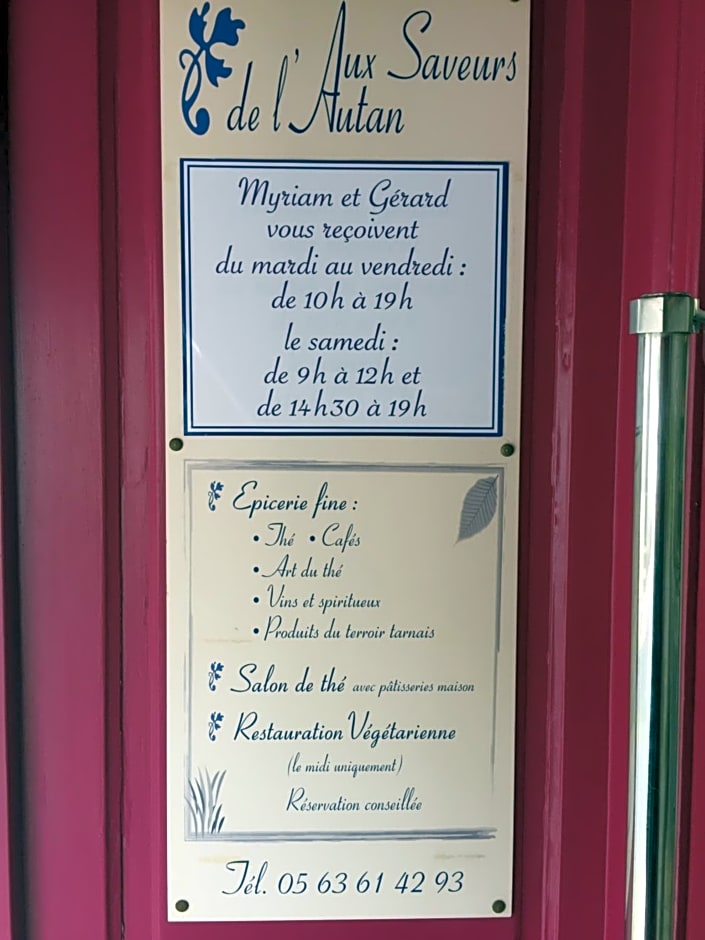 Aux Saveurs
de l'Autan
Myriam et Gérard
vous reçoivent
du mardi au vendredi :
de 10h à 19h
le samedi :
de 9h à 12h et
de 14h30 à 19h
Epicerie fine :
• Thé • Cafés
• Art du thé
• Vins et spiritueux
• Produits du terroir tarnais
Salon de thé avec pâtisseries maison
Restauration Végétarienne
(le midi uniquement)
Réservation conseillée
Tél. 05 63 61 42 93